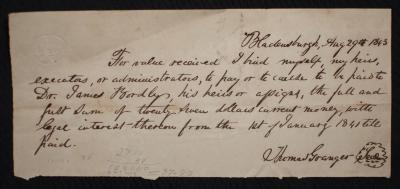 Bladensburgh, Aug 29th 1843
For value received I bind myself, my heirs,
executors, or administrators, to pay or to cause to be paid to
Dr. James Bordley, his heirs or assigns, the full and
full sum of twenty seven dollars current money with
legal interest thereon from the 1st of January 1841 till
paid.
Thomas Granger Seal